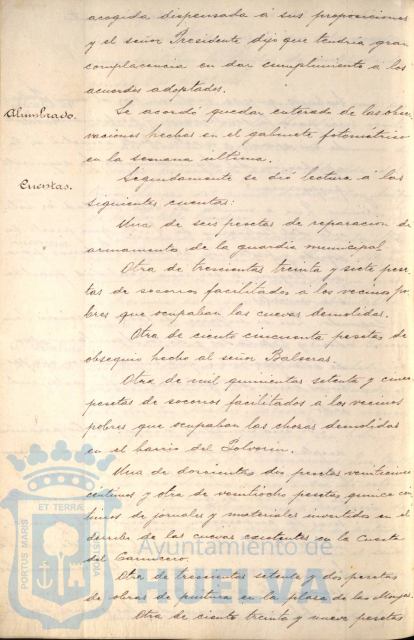 acogida dispensada á sus proposiciones
y el señor Presidente dijo que tendria gran
complacencia en dar cumplimiento a los
acuerdos adoptados.
Alumbrado.
Se acordó quedar enterado de las obser
vaciones hechas en el gabinete fotométrico
en la semana ultima.
Cuentas.
Segundamente se dió lectura á las
siguientes cuentas:
Una de seis pesetas de reparacion de
armamento de la guardia municipal
Otra de trescientas treinta y siete pese
tas de socorros facilitados á los vecinos po
bres que ocupaban las cuevas demolidas.
Otra de ciento cincuenta pesetas de
obsequio hecho al señor Balseras.
Otra de mil quinientas setenta y cinco
pesetas de socorros facilitados á los vecinos
pobres que ocupaban las chozas demolidas
en el barrio del Polvorin.
Una de doscientas dos pesetas veintinueve
centimos y otra de veintiocho pesetas quince cen
timos de jornales y materiales invertidos en el
derribo de las cuevas existentes en la Cuesta
del Carnicero.
Otra de trescientas setenta y dos pesetas
de obras de pintura en la plaza de las Monjas.
Otra de ciento treinta y nueve pesetas
PORTUS MARIS
ET TERRÆ
CUSTODIA
Ayuntamiento de
HUELVA